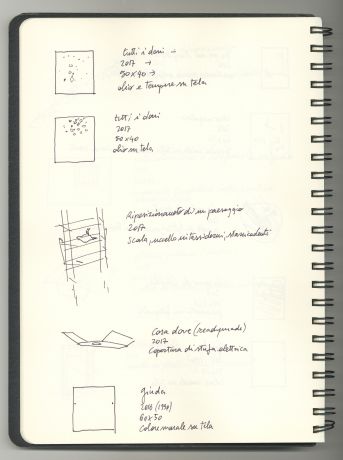 tutti i doni
2017
50x40
olio e tempera su tela
tutti i doni
2017
50x40
olio su tela
Riposizionamento di un paesaggio
2017
Scala, uccello in tassidermia, stuzzicadenti
Cosa dove (readymade)
2017
Copertura di stufa elettrica
giuda
2016 (1990)
60x50
Colore murale su tela